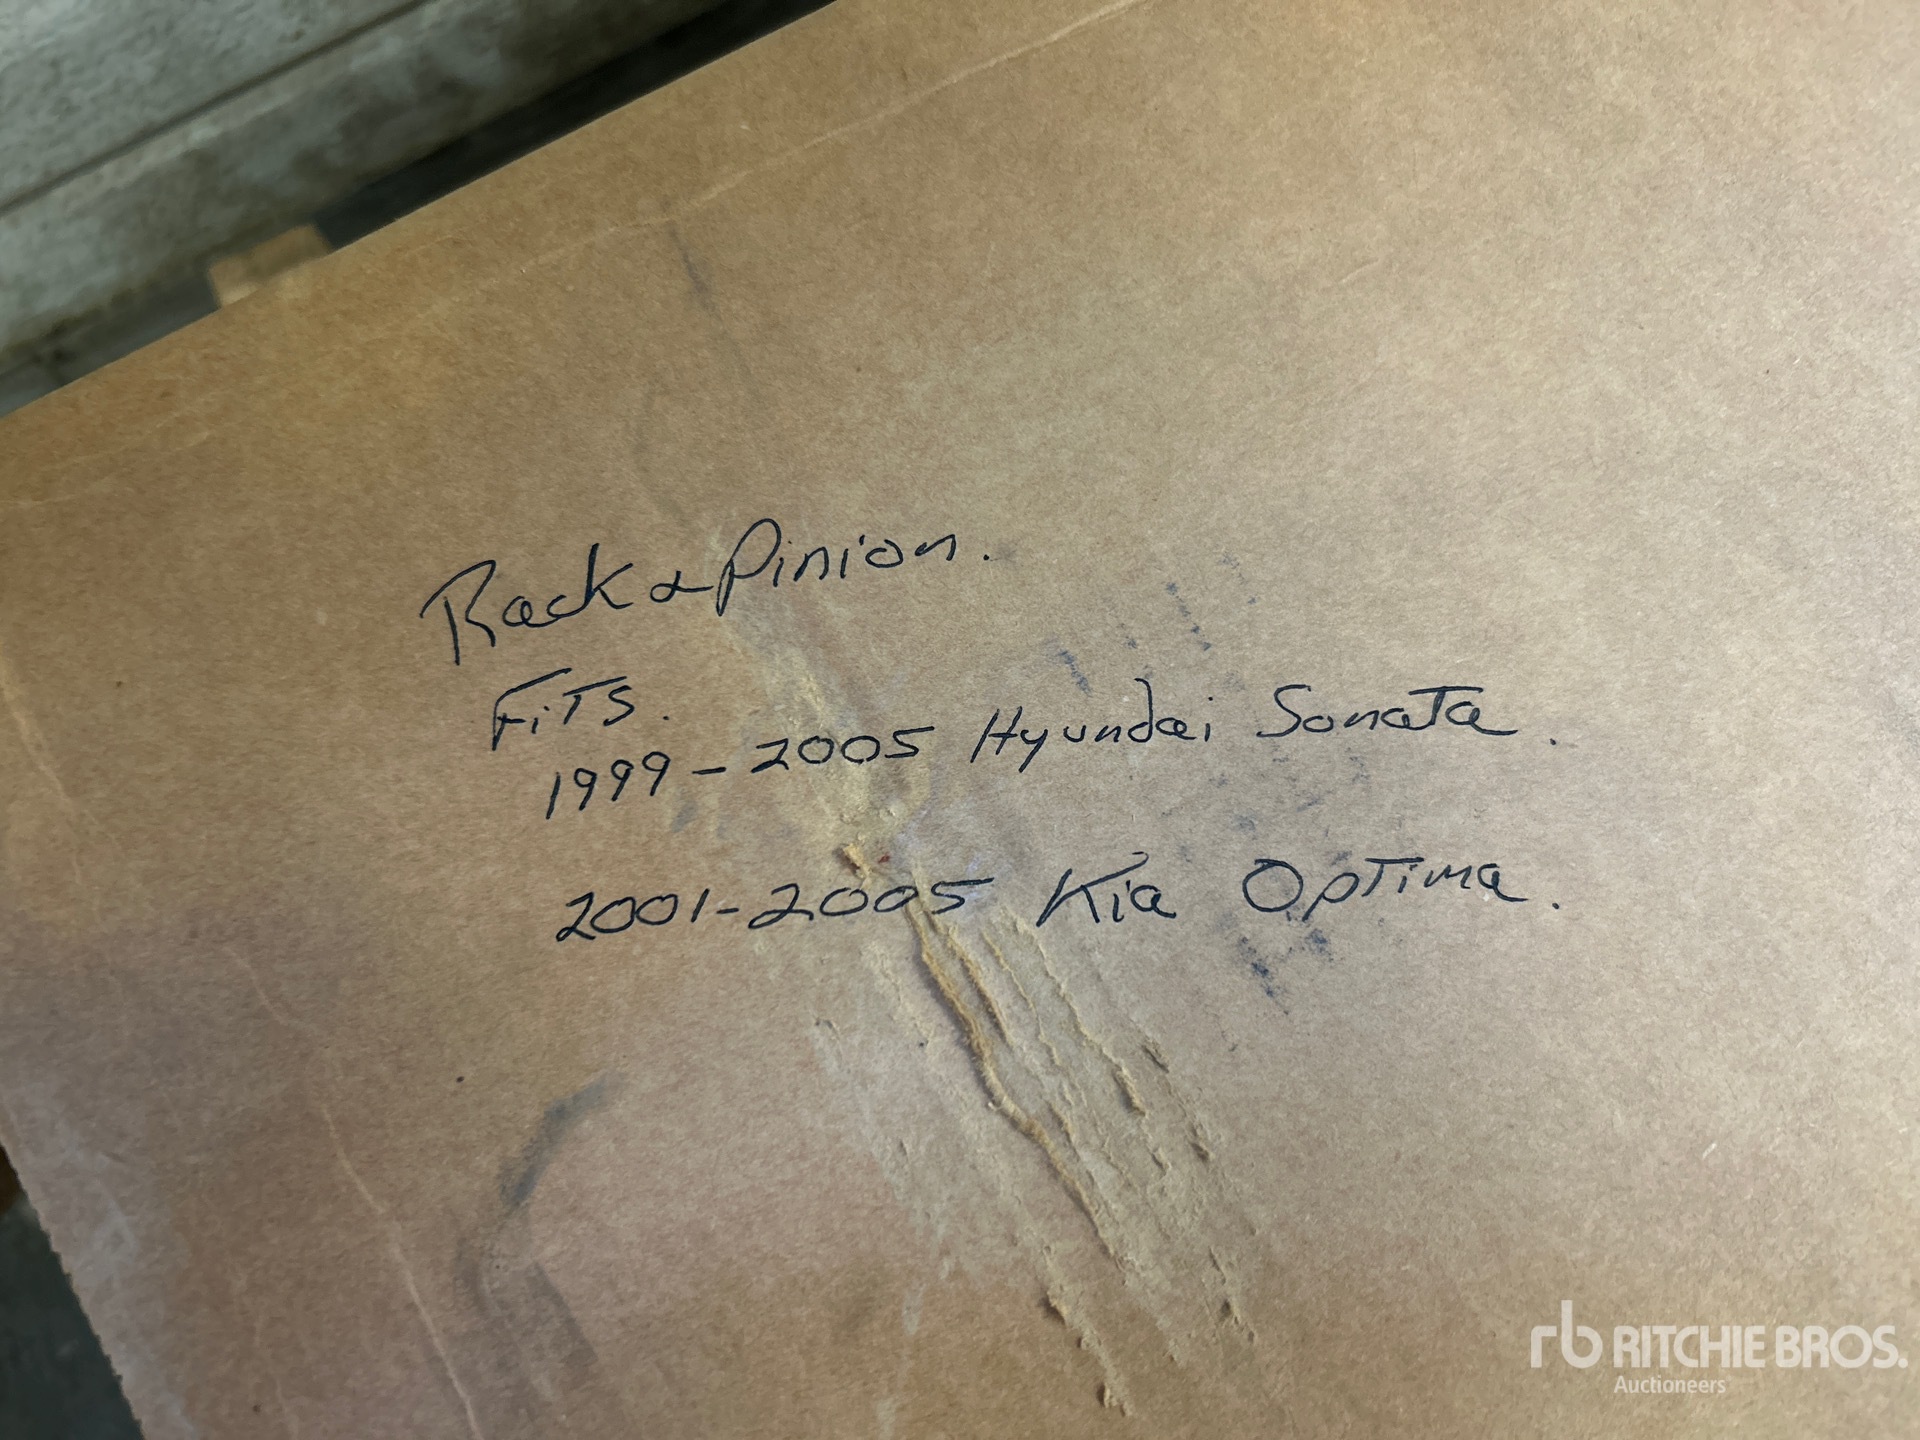 Rack & Pinion.
FiTS.
1999-2005 Hyundai Sonata.
2001-2005 Kia Optima.
rb RITCHIE BROS.
Auctioneers